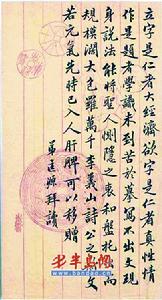 立字是仁者大經濟欲字是仁者真性情
作是題者學識未到苦於摹寫不出文現
身說法能將聖人惻隱之衷和盤托出而
規模濶大包羅萬千李義山詩公之斯文
若元氣先時已入人肝脾可以移贈
弟 拜讀
半島網